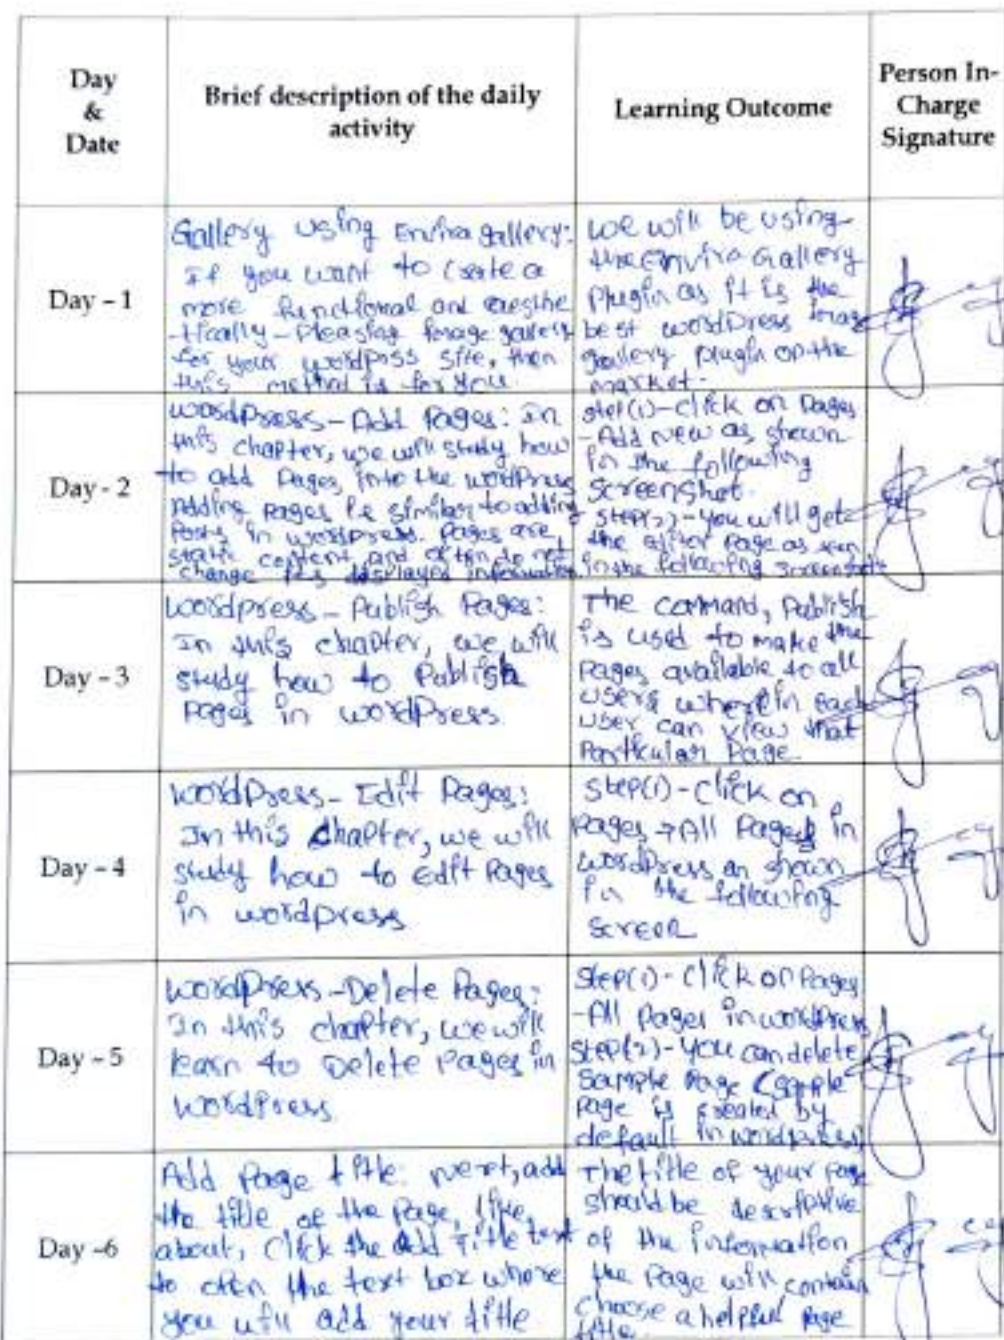 Day
&
Date
Brief description of the daily
activity
Learning Outcome
Person In-
Charge
Signature
Day - 1
Gallery using Envira gallery:
If you want to create a
more functional and aesthe
-tically-Pleasing Image gallery
for your wordpress site, then
this method is for you.
we will be using
the Envira Gallery
Plugin as it is the
best wordPress Image
gallery plugin on the
market.
Day - 2
wordpress-Add Pages: In
this chapter, we will study how
to add Pages, into the wordPress
Adding Pages is similar to adding
Posts in wordpress. Pages are
static content and often do not
change its displayed information.
step(1)-click on Pages
-Add New as shown
in the following
screenshot.
step(2)-you will get
the editor page as seen
in the following screenshot
Day - 3
wordpress - Publish Pages:
In this chapter, we will
study how to Publish
Pages in wordPress.
The command, Publish
is used to make the
Pages available to all
users wherein each
user can view that
Particular Page.
Day - 4
wordPress- Edit Pages:
In this chapter, we will
study how to Edit Pages
in wordpress
Step(1)-Click on
Pages →All Pages in
wordpress as shown
in the following
screen
Day - 5
wordPress-Delete Pages:
In this chapter, we will
learn to Delete Pages in
wordPress.
Step(1)- Click on Pages
-All Pages in wordPress
Step(2)-You can delete
Sample Page (sample
Page is created by
default in wordpress)
Day -6
Add Page title: next, add
the title of the Page, like
about, Click the Add Title text
to open the text box where
you will add your title
The title of your page
should be descriptive
of the information
the Page will contain
choose a helpful page
title.